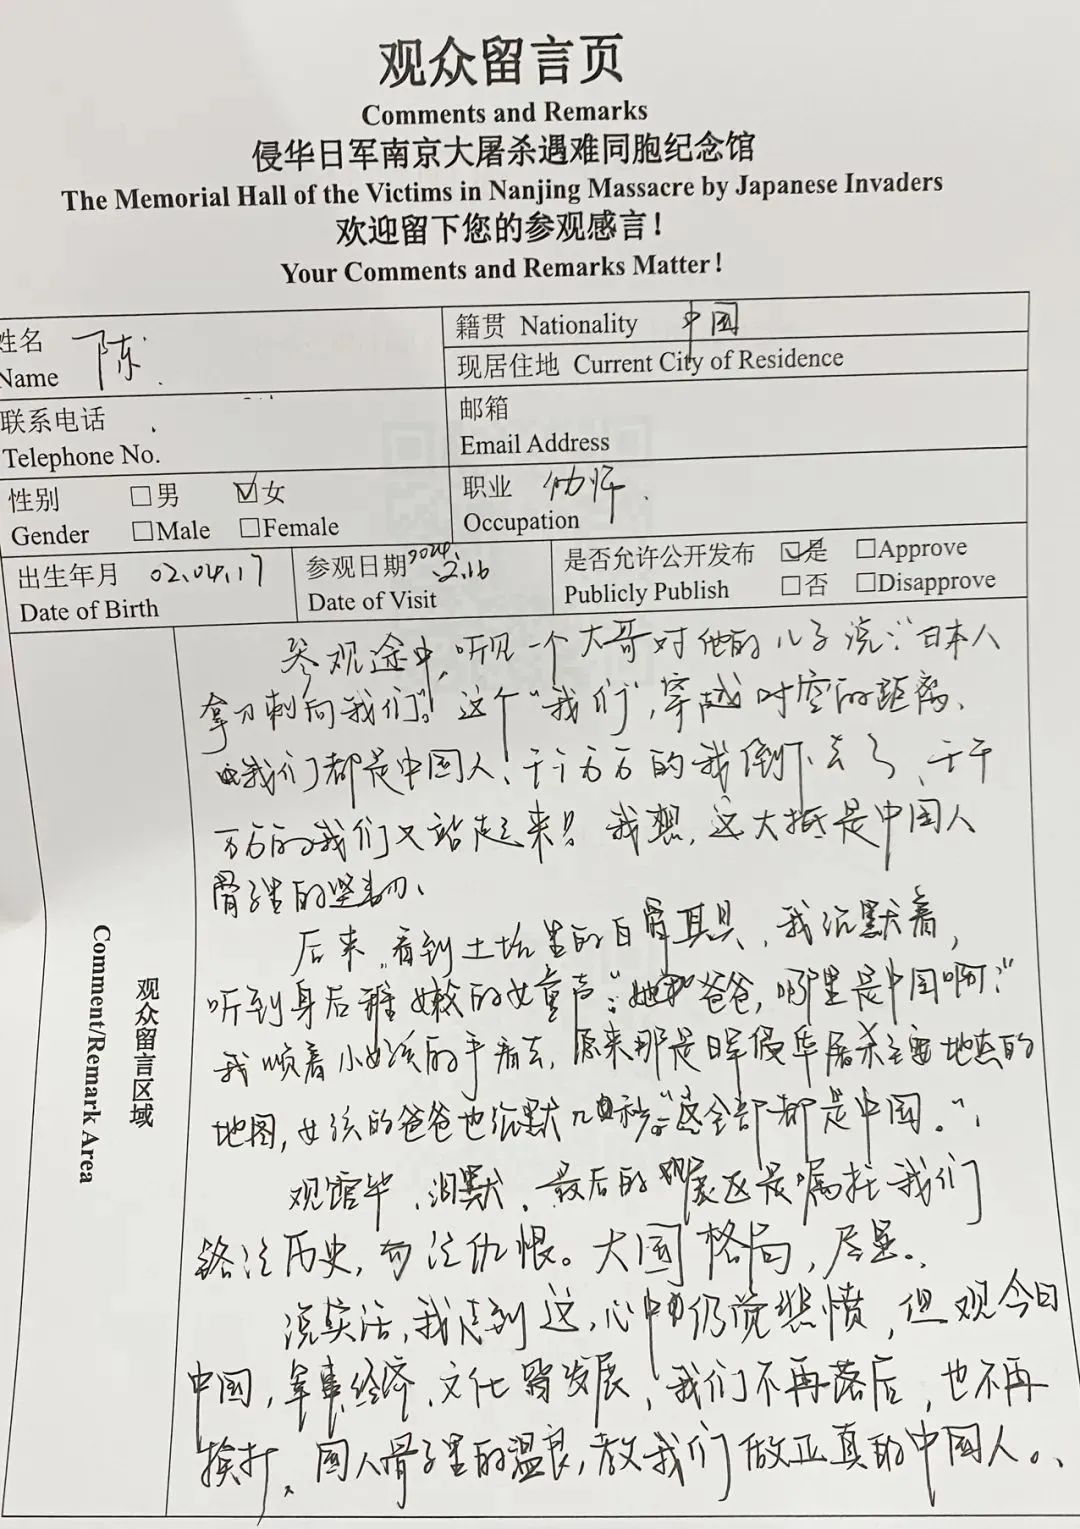 观众留言页
Comments and Remarks
侵华日军南京大屠杀遇难同胞纪念馆
The Memorial Hall of the Victims in Nanjing Massacre by Japanese Invaders
欢迎留下您的参观感言！
Your Comments and Remarks Matter!
姓名 陈
Name
籍贯 Nationality 中国
现居住地 Current City of Residence
联系电话
Telephone No.
邮箱
Email Address
性别 □男 ☑女
Gender □Male □Female
职业 幼师
Occupation
出生年月 02.04.17
Date of Birth
参观日期 2024.2.16
Date of Visit
是否允许公开发布 ☑是 □Approve
Publicly Publish □否 □Disapprove
观众留言区域
Comment/Remark Area
参观途中，听见一个大哥对他的儿子说：“日本人
拿刀刺向我们”。这个“我们”，穿越时空的距离、
我们都是中国人！千千万万的我倒下去了、千千
万万的我们又站起来！我想，这大抵是中国人
骨子里的坚韧、
后来，看到土坑里的白骨具具，我沉默着，
听到身后稚嫩的女童声：“爸爸，哪里是中国啊？”
我顺着小女孩的手看去，原来那是日军侵华屠杀主要地点的
地图，女孩的爸爸也沉默几秒：“这全部都是中国。”
观馆毕、泪默、最后的展区是嘱托我们
铭记历史，勿记仇恨。大国格局，尽显。
说实话，我走到这，心中仍觉悲愤，但观今日
中国，军事、经济、文化皆发展，我们不再落后，也不再
挨打、国人骨子里的温良，教我们做正真的中国人。